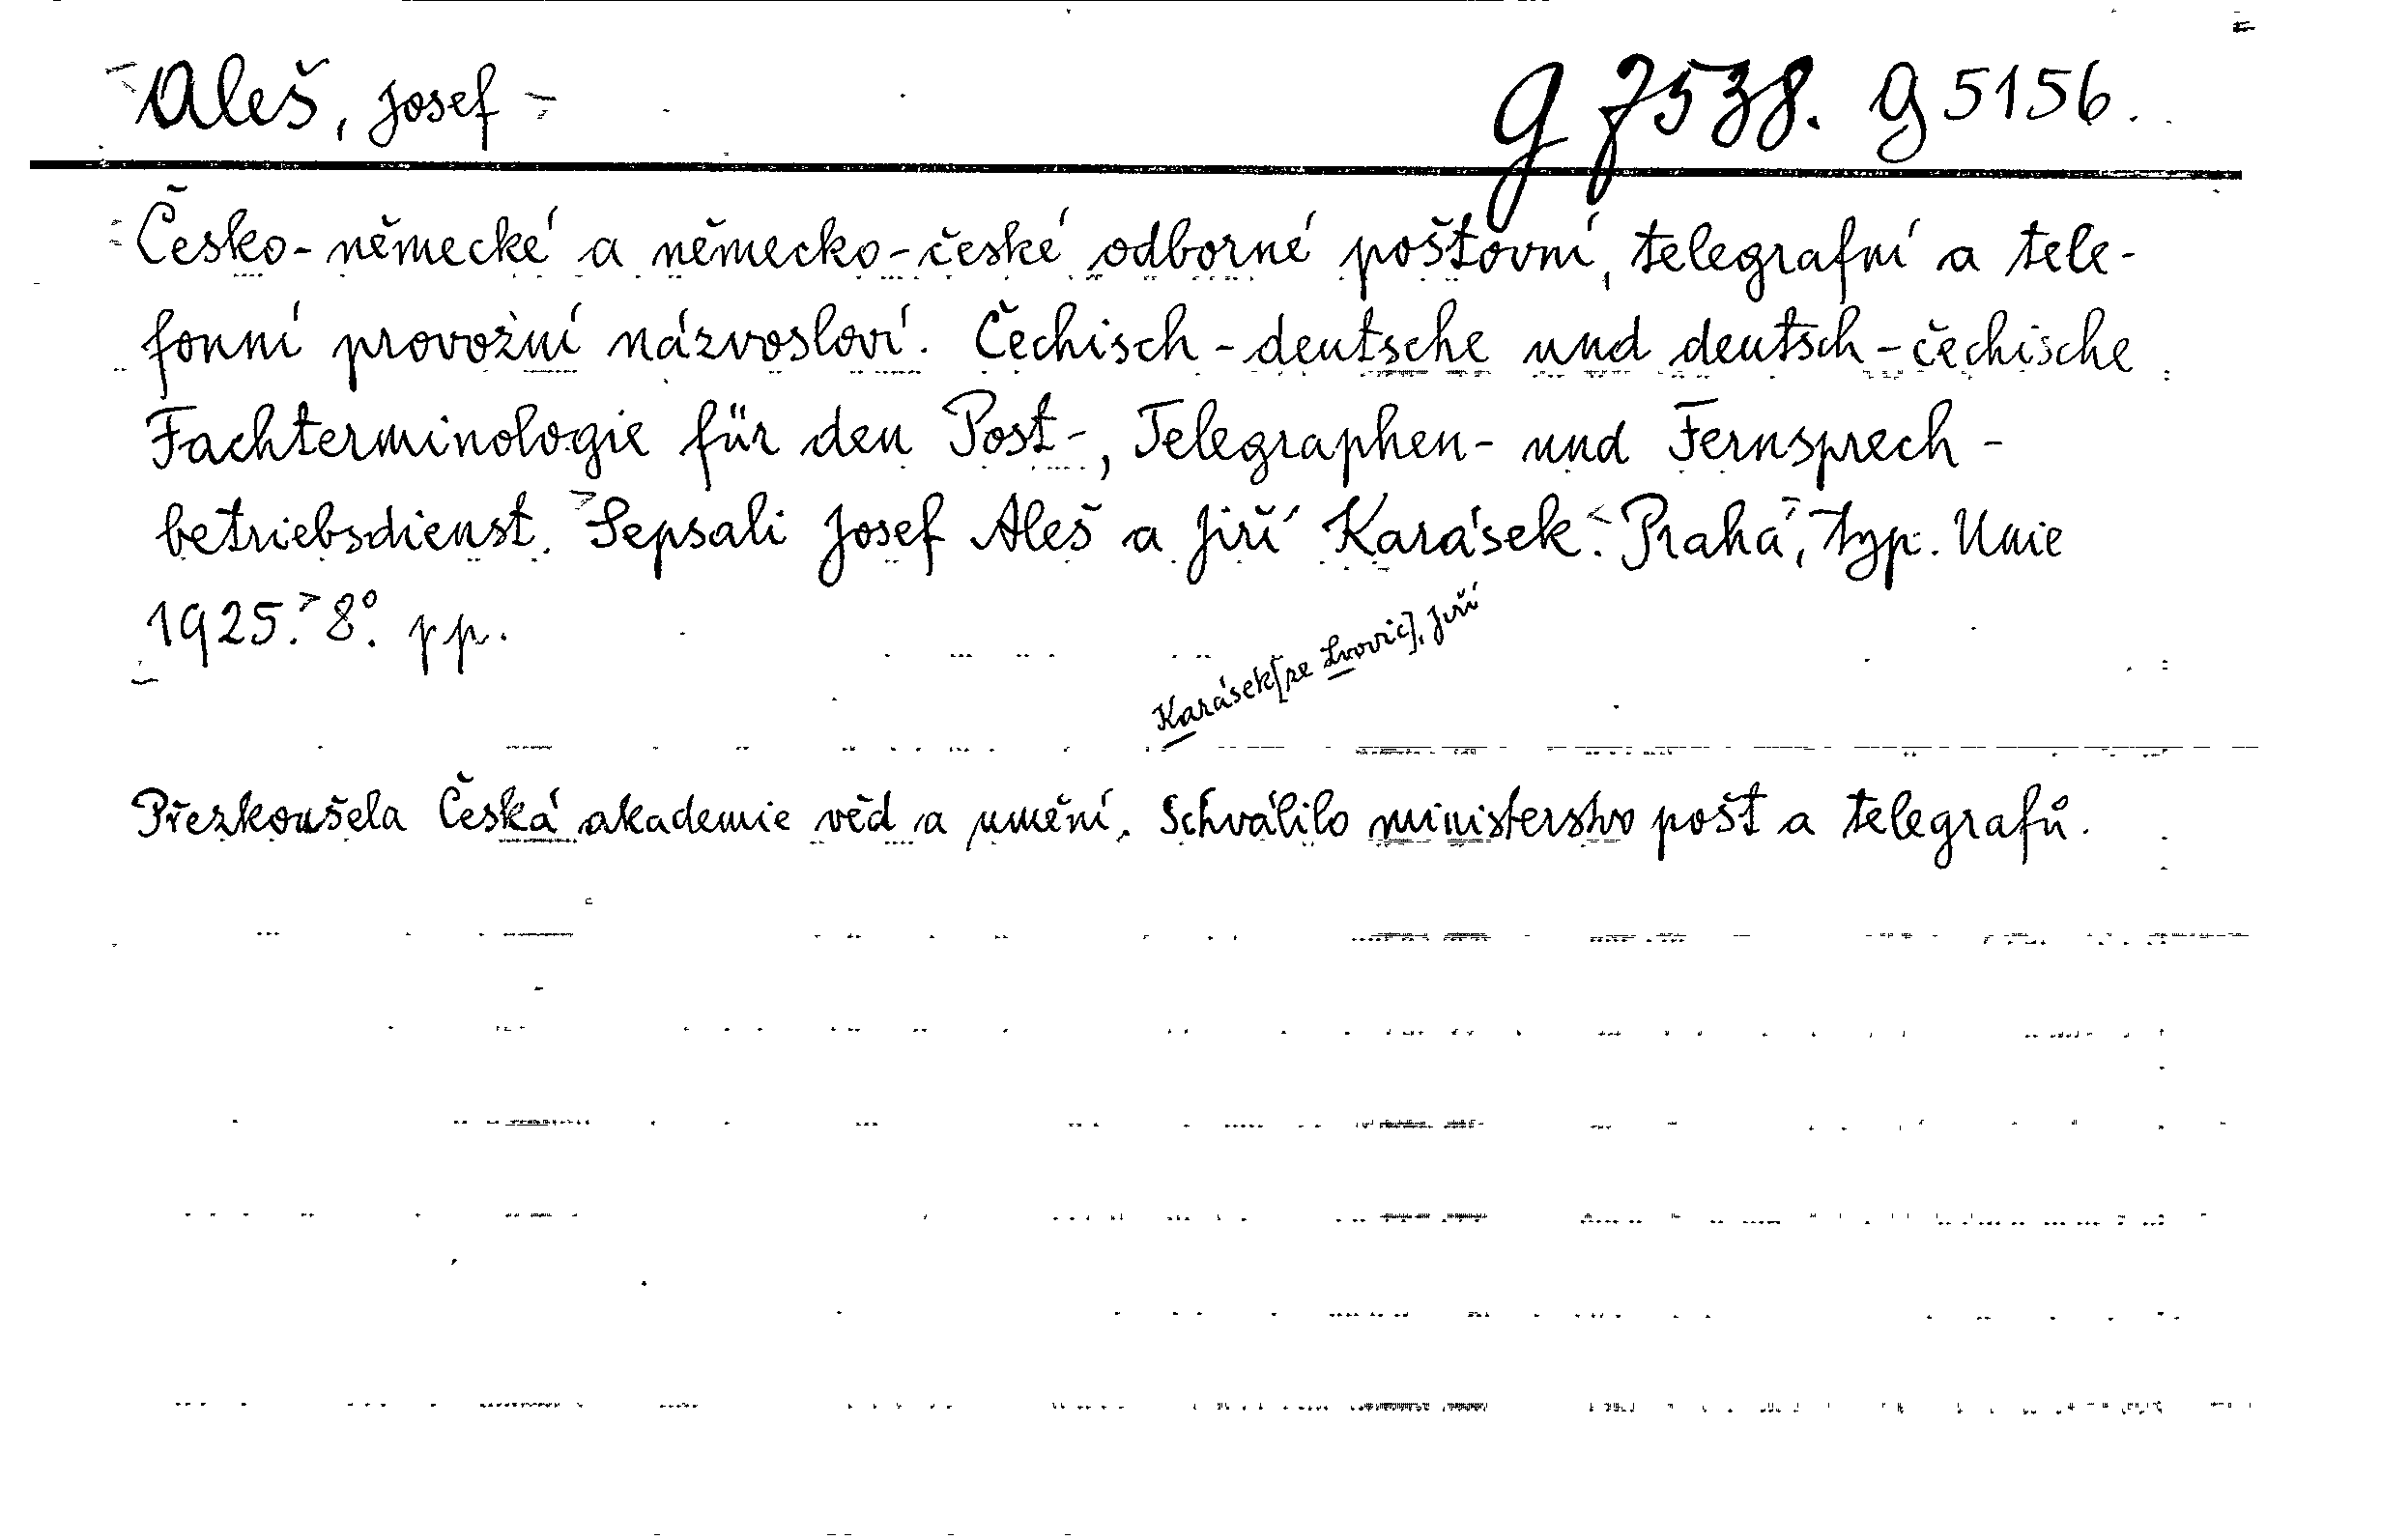 Aleš, Josef
g 7538. g 5156.
Česko-německé a německo-české odborné poštovní, telegrafní a tele-
fonní provozní názvosloví. Čechisch-deutsche und deutsch-čechische
Fachterminologie für den Post-, Telegraphen- und Fernsprech-
betriebsdienst. Sepsali Josef Aleš a Jiří Karásek. Praha, typ. Unie
1925. 8°. pp.
Karásek[ze Lvovic], Jiří
Přezkoušela Česká akademie věd a umění. Schválilo ministerstvo pošt a telegrafů.